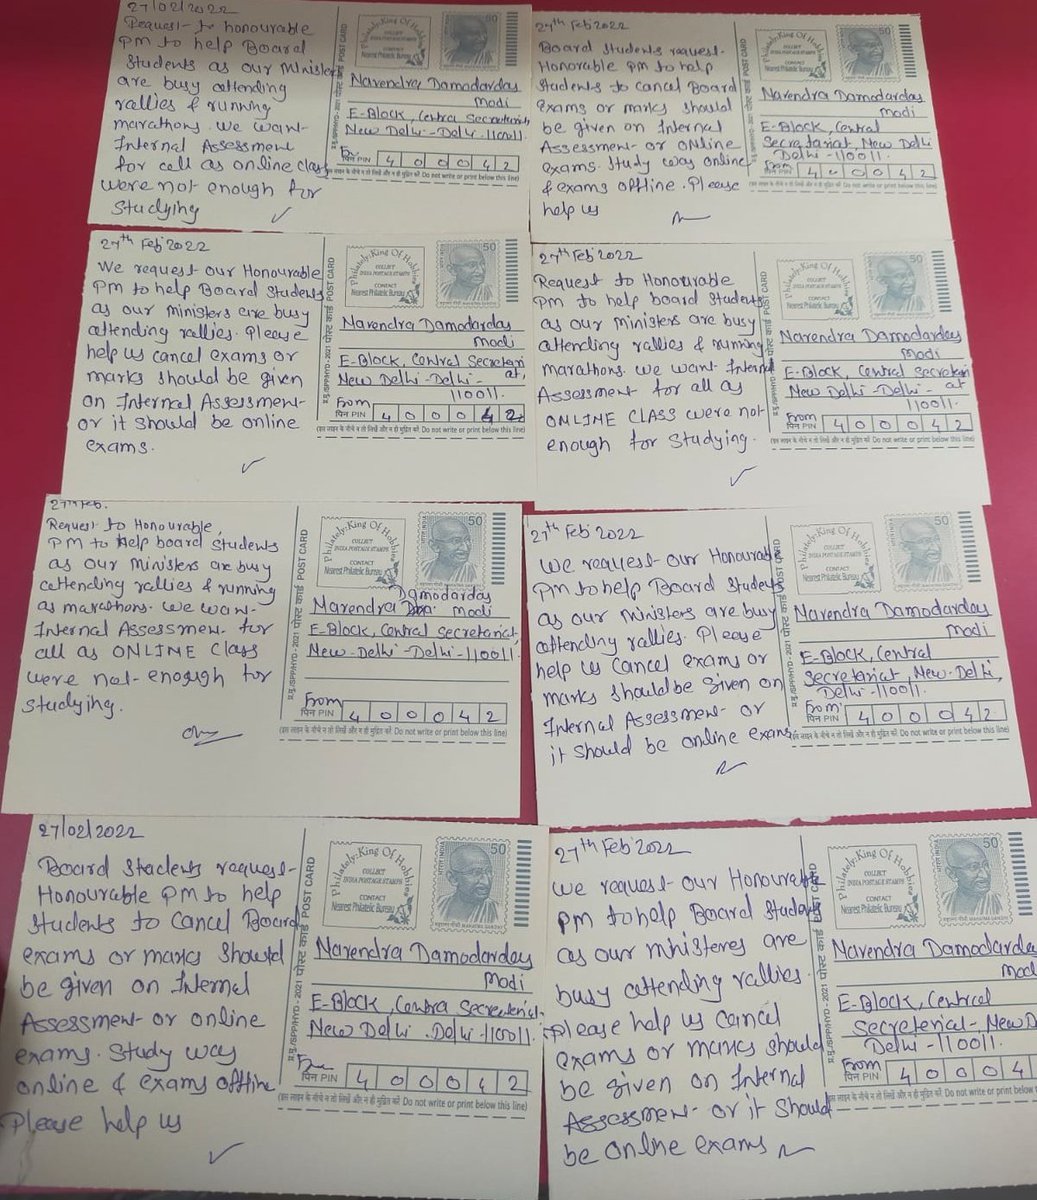 27/02/2022
Request to honourable
PM to help Board
Students as our Ministers
are busy attending
rallies & running
marathons. We want
Internal Assessment
for call as online class
were not enough for
Studying
प्र.मु./SPPHYD - 2021 पोस्ट कार्ड POST CARD
Philately:King Of Hobbies
COLLECT
INDIA POSTAGE STAMPS
CONTACT
Nearest Philatelic Bureau
50
Narendra Damodardas
Modi
E-Block, Central Secretariat,
New Delhi-Delhi-110011.
पिन PIN 400042
(इस लाइन के नीचे न तो लिखें और न ही मुद्रित करें Do not write or print below this line)
27th Feb'2022
Board Students request
Honorable PM to help
Students to cancel Board
Exams or marks should
be given on Internal
Assessment or ONline
exams. Study was online
& exams offline. Please
help us
POST CARD
Philately:King Of Hobbies
COLLECT
INDIA POSTAGE STAMPS
CONTACT
Nearest Philatelic Bureau
50
Narendra Damodardas
Modi
E-Block, Central
Secretariat, New Delhi
Delhi-110011.
From
पिन PIN 400042
(इस लाइन के नीचे न तो लिखें और न ही मुद्रित करें Do not write or print below this line)
27th Feb'2022
We request our Honourable
PM to help Board Students
as our ministers are busy
attending rallies. Please
help us cancel exams or
marks should be given
on Internal Assessment
or it should be online
exams.
प्र.मु./SPPHYD - 2021 पोस्ट कार्ड POST CARD
Philately:King Of Hobbies
COLLECT
INDIA POSTAGE STAMPS
CONTACT
Nearest Philatelic Bureau
50
Narendra Damodardas
Modi
E-Block, Central Secretari
at,
New Delhi-Delhi-
110011.
From
पिन PIN 400042
(इस लाइन के नीचे न तो लिखें और न ही मुद्रित करें Do not write or print below this line)
27th Feb'2022
Request to Honourable
PM to help board Students
as our Ministers are busy
attending rallies & running
marathons. We want Internal
Assessment for all as
ONLINE CLASS were not
enough for Studying.
पोस्ट कार्ड POST CARD
Philately:King Of Hobbies
COLLECT
INDIA POSTAGE STAMPS
CONTACT
Nearest Philatelic Bureau
50
Narendra Damodardas
Modi
E-Block, Central Secretari
at
New Delhi-Delhi-
110011.
From
पिन PIN 400042
(इस लाइन के नीचे न तो लिखें और न ही मुद्रित करें Do not write or print below this line)
27th Feb.
Request to Honourable,
PM to Help board Students
as our Ministers are busy
attending rallies & running
as marathons. We want
Internal Assessment for
all as ONLINE Class
were not enough for
studying.
प्र.मु./SPPHYD - 2021 पोस्ट कार्ड POST CARD
Philately:King Of Hobbies
COLLECT
INDIA POSTAGE STAMPS
CONTACT
Nearest Philatelic Bureau
50
Damodardas
Narendra Modi
E-Block, Central Secretariat,
New-Delhi-Delhi-110011.
From
पिन PIN 400042
(इस लाइन के नीचे न तो लिखें और न ही मुद्रित करें Do not write or print below this line)
27th Feb'2022
We request our Honourable
PM to help Board Students
as our Ministers are busy
attending rallies. Please
help us cancel exams or
marks should be given on
Internal Assessment or
it should be online exams
POST CARD
Philately:King Of Hobbies
COLLECT
INDIA POSTAGE STAMPS
CONTACT
Nearest Philatelic Bureau
50
Narendra Damodardas
Modi
E-Block, Central
Secretariat, New-Delhi,
Delhi-110011.
From
पिन PIN 400042
(इस लाइन के नीचे न तो लिखें और न ही मुद्रित करें Do not write or print below this line)
27/02/2022
Board Students request
Honourable PM to help
Students to cancel Board
exams or marks should
be given on Internal
Assessment or online
exams. Study was
online & exams offline
Please help us
प्र.मु./SPPHYD - 2021 पोस्ट कार्ड POST CARD
Philately:King Of Hobbies
COLLECT
INDIA POSTAGE STAMPS
CONTACT
Nearest Philatelic Bureau
50
Narendra Damodardas
Modi
E-Block, Central Secretariat
New Delhi. Delhi-110011.
पिन PIN 400042
(इस लाइन के नीचे न तो लिखें और न ही मुद्रित करें Do not write or print below this line)
27th Feb'2022
We request our Honourable
PM to help Board Students
as our ministeres are
busy attending rallies.
Please help us cancel
exams or marks should
be given on Internal
Assessment or it should
be online exams
POST CARD
Philately:King Of Hobbies
COLLECT
INDIA POSTAGE STAMPS
CONTACT
Nearest Philatelic Bureau
50
Narendra Damodardas
Modi
E-Block, Central
Secreterial-New D
Delhi-110011.
From
पिन PIN 40004
(इस लाइन के नीचे न तो लिखें और न ही मुद्रित करें Do not write or print below